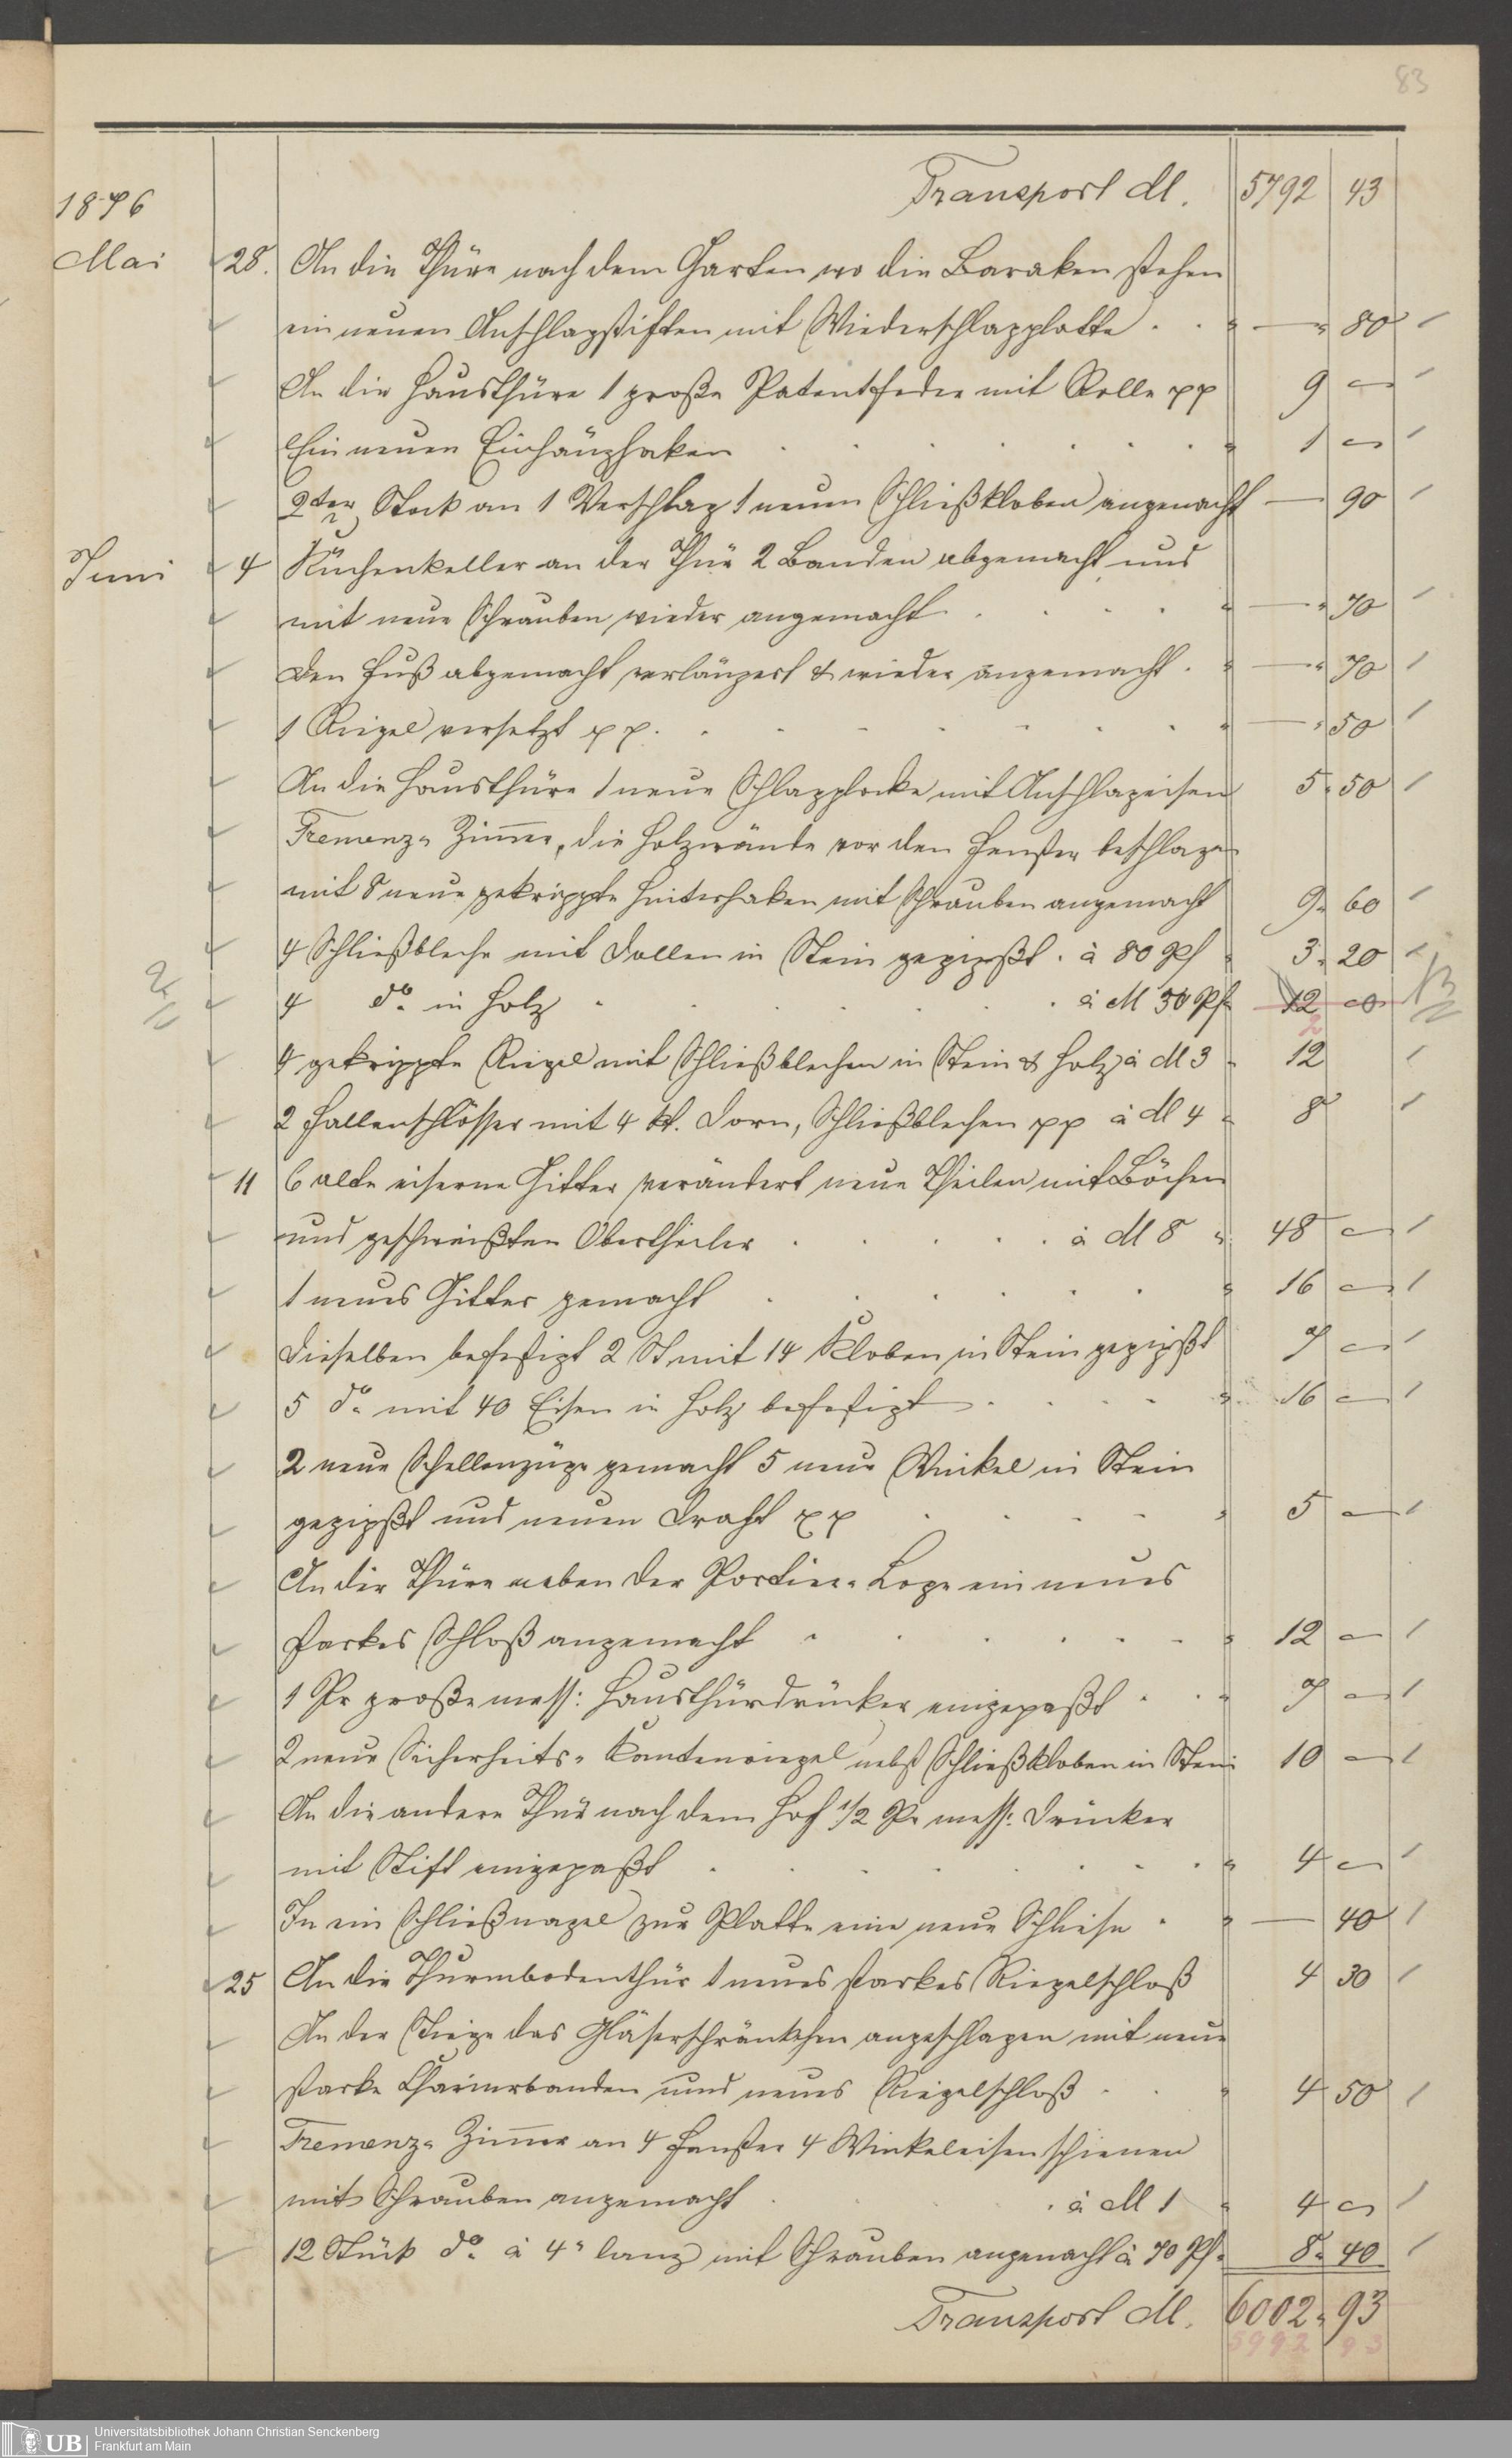 83
Transport M. 5792 43
1876
Mai 28. An die Thüre nach dem Garten wo die Baraken stehen
ein neuen Anschlagstiften mit Wiederschlagplatte . . " — " 80
An die Hausthüre 1 große Patentfeder mit Rolle pp 9 —
Ein neuen Einhänghaken . . . . . . " 1 —
2ter Stock an 1 Verschlag 1 neuen Schließkloben angemacht — 90
Juni 4 Küchenkeller an der Thür 2 Banden abgemacht und
mit neue Schrauben wieder angemacht . . . . " — " 70
Den Fuß abgemacht verlängert & wieder angemacht . " — " 70
1 Riegel versetzt pp. . . . . . . . " — " 50
An die Hausthüre 1 neue Schlagglocke mit Anschlageisen 5 " 50
Fremenz- Zimmer, die Holzwände vor den Fenster beschlagen
mit 8 neue gekrippte Hinterhaken mit Schrauben angemacht 9 " 60
4 Schließbleche mit Dollen in Stein gegipßt . à 80 Pf " 3 " 20
4 do. in Holz . . . . . à M 50 Pf " 12 —
2
4 gekrippte Riegel mit Schließblechen in Stein & Holz à M 3 " 12
2 Fallenschlösser mit 4 kt. Dorn, Schließblechen pp à M 4 " 8
11 6 alte eiserne Gitter verändert neue Theilen mit Böchen
und geschweißten Obertheiler . . . . . à M 8 " 48 —
1 neues Gitter gemacht . . . . . . " 16 —
Dieselben befestigt 2 St mit 14 Kloben in Stein gegipßt 7 —
5 do. mit 40 Eisen in Holz befestigt . . . . " 16 —
2 neue Schellenzüge gemacht 5 neue Winkel in Stein
gegipßt und neuen Draht pp . . . . " 5 —
An die Thüre neben der Portier- Loge ein neues
starkes Schloß angemacht . . . . . . " 12 —
1 Pr große mess: Hausthürdrücker eingepaßt . . " 7 —
2 neue Sicherheits- Kantenriegel nebst Schließkloben in Stein 10 —
An die andere Thür nach dem Hof 1/2 Pr mess: Drücker
mit Stift eingepaßt . . . . . . . " 4 —
In ein Schließnagel zur Platte eine neue Schliese . " — 40
25 An die Thurmbodenthür 1 neues starkes Riegelschloß 4 30
An der Stiege das Gläserschränkchen angeschlagen mit neue
starke Charnirbanden und neues Riegelschloß . . " 4 50
Fremenz- Zimmer an 4 Fenster 4 Winkeleisenschienen
mit Schrauben angemacht . . . à M 1 " 4 —
12 Stück do. à 4" lang mit Schrauben angemacht à 70 Pf " 8 " 40
Transport M. 6002 " 93
5992 93
UB Universitätsbibliothek Johann Christian Senckenberg
Frankfurt am Main